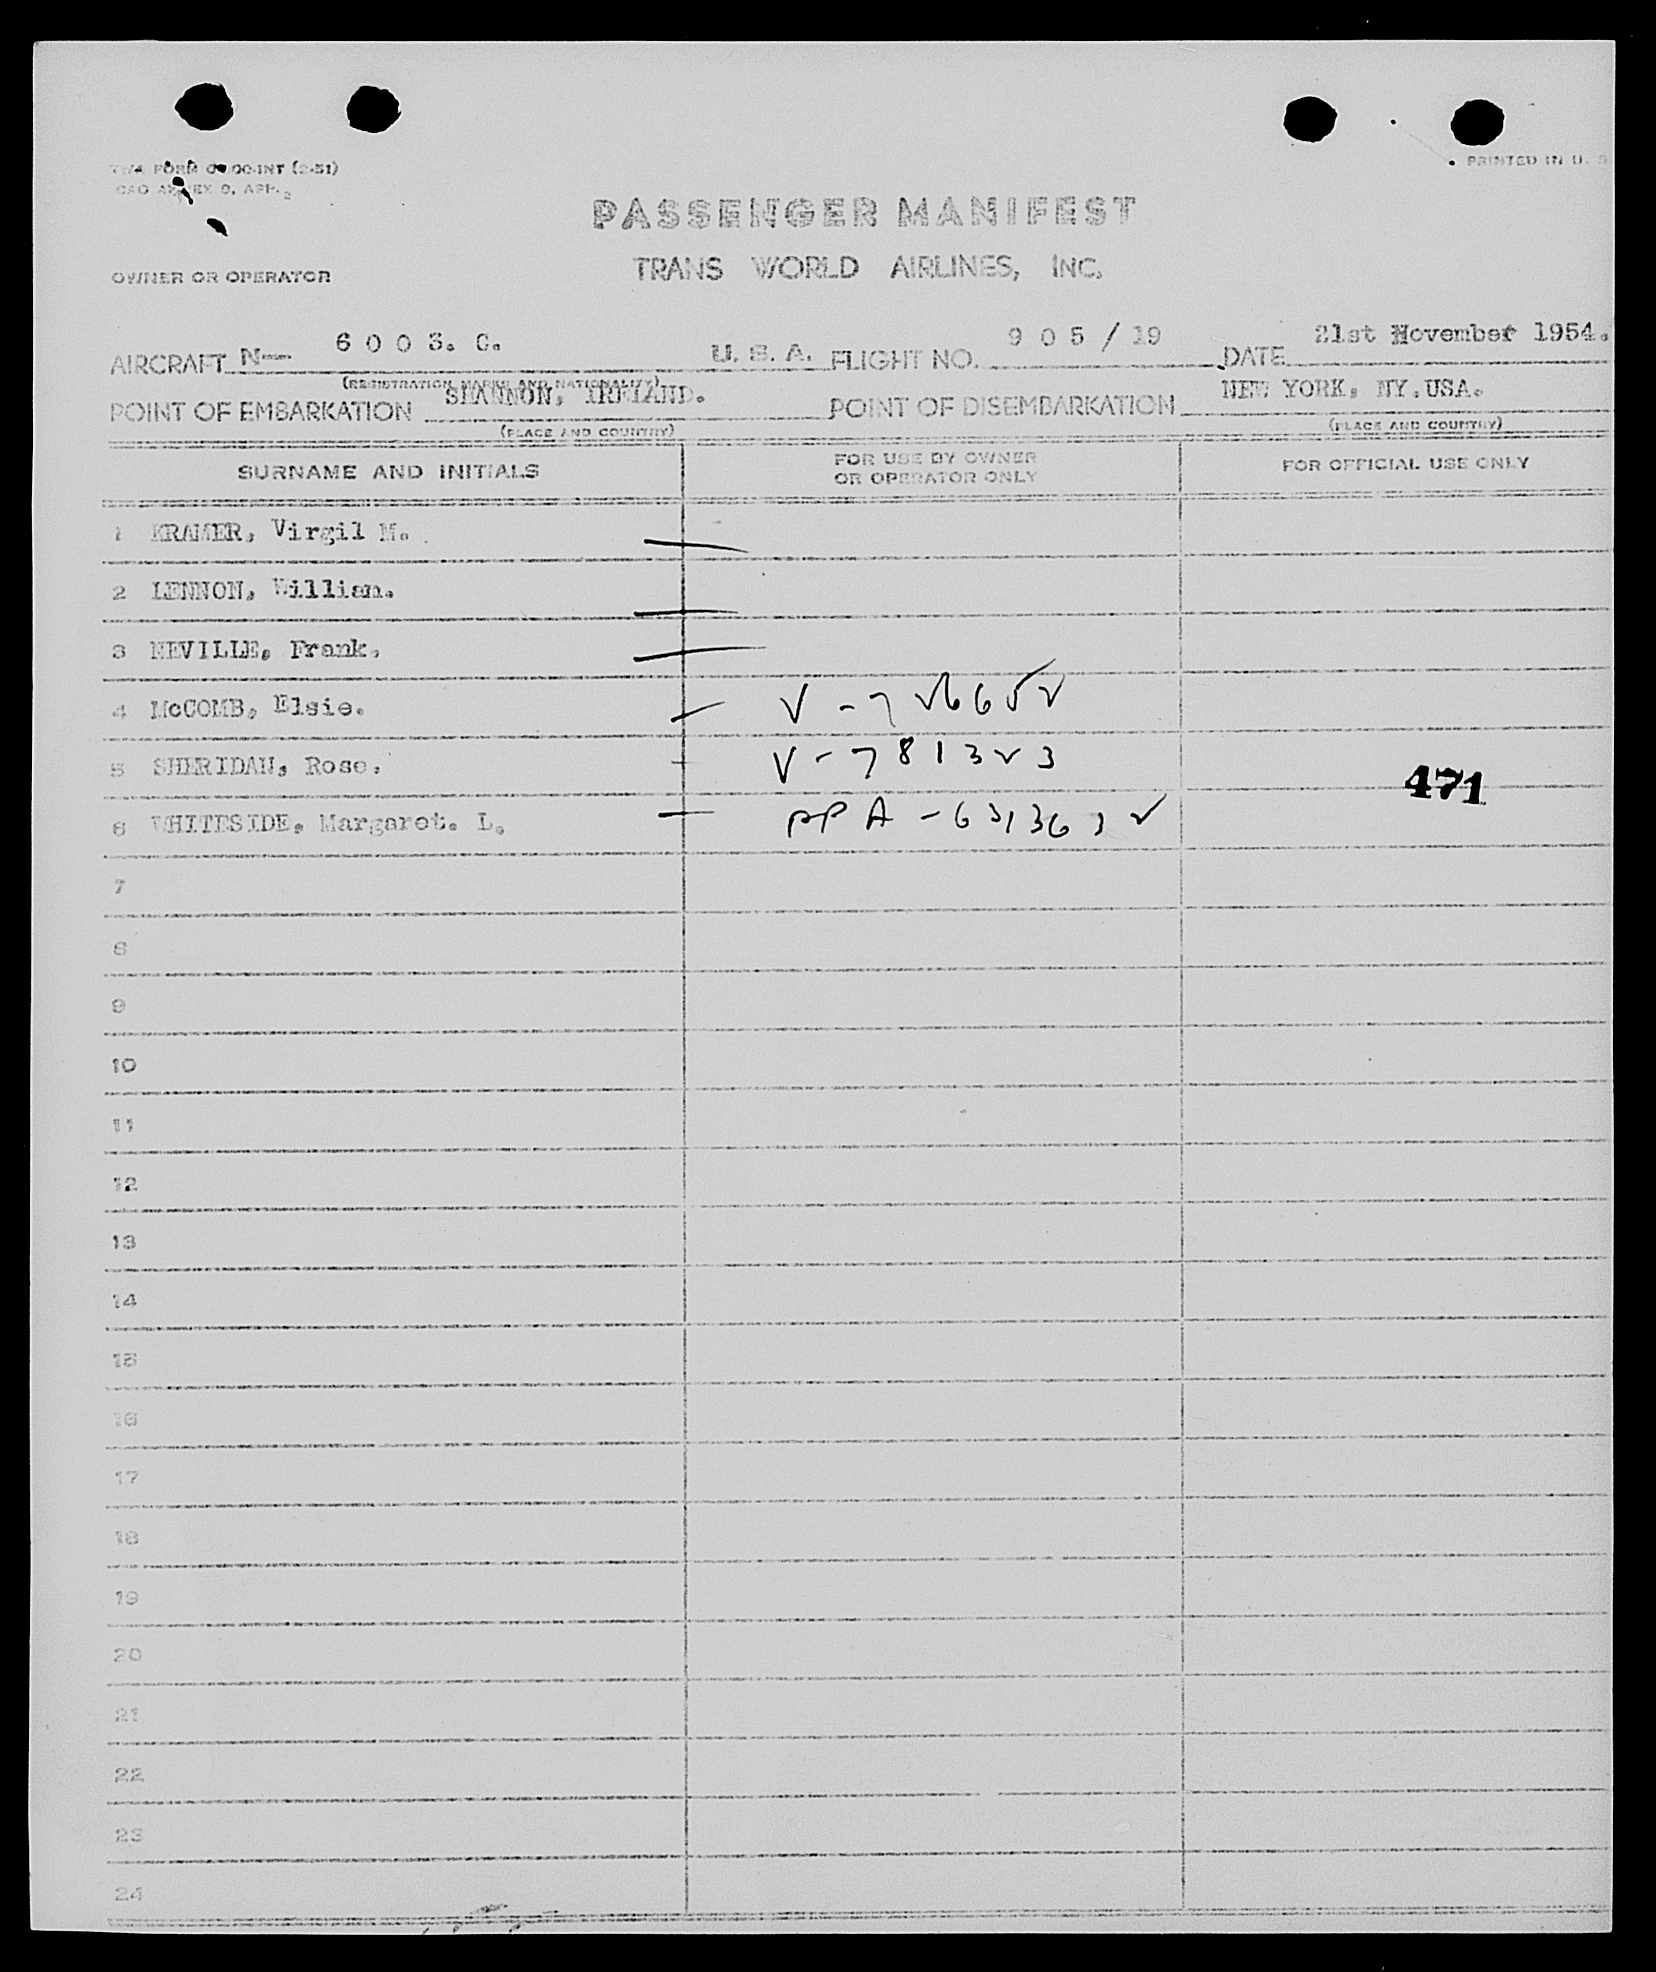 TWA FORM O-OO-INT (2-51)
ICAO ANNEX 9, APP. 2
PRINTED IN U. S.
PASSENGER MANIFEST
OWNER OR OPERATOR TRANS WORLD AIRLINES, INC.
AIRCRAFT N— 6 0 0 3. C. U. S. A. FLIGHT NO. 9 0 5 / 19 DATE 21st November 1954.
(REGISTRATION MARKS AND NATIONALITY)
POINT OF EMBARKATION SHANNON, IRELAND. POINT OF DISEMBARKATION NEW YORK, NY.USA.
(PLACE AND COUNTRY) (PLACE AND COUNTRY)
SURNAME AND INITIALS FOR USE BY OWNER OR OPERATOR ONLY FOR OFFICIAL USE ONLY
1 KRAMER, Virgil M.
2 LENNON, William.
3 NEVILLE, Frank.
4 McCOMB, Elsie. V-726652
5 SHERIDAN, Rose. V-781323
471
6 WHITESIDE, Margaret. L. PPA-6313632
7
8
9
10
11
12
13
14
15
16
17
18
19
20
21
22
23
24